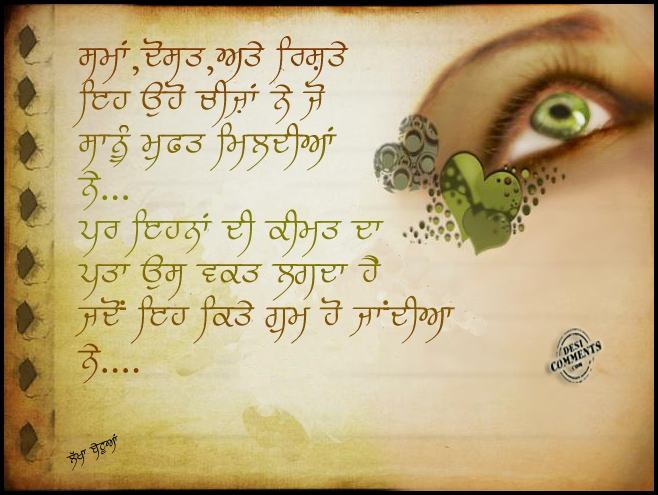 ਸਮਾਂ,ਦੋਸਤ,ਅਤੇ ਰਿਸ਼ਤੇ
ਇਹ ਉਹੋ ਚੀਜ਼ਾਂ ਨੇ ਜੋ
ਸਾਨੂੰ ਮੁਫਤ ਮਿਲਦੀਆਂ
ਨੇ...
ਪਰ ਇਹਨਾਂ ਦੀ ਕੀਮਤ ਦਾ
ਪਤਾ ਉਸ ਵਕਤ ਲਗਦਾ ਹੈ
ਜਦੋਂ ਇਹ ਕਿਤੇ ਗੁਮ ਹੋ ਜਾਂਦੀਆ
ਨੇ....
DESI
COMMENTS
.COM